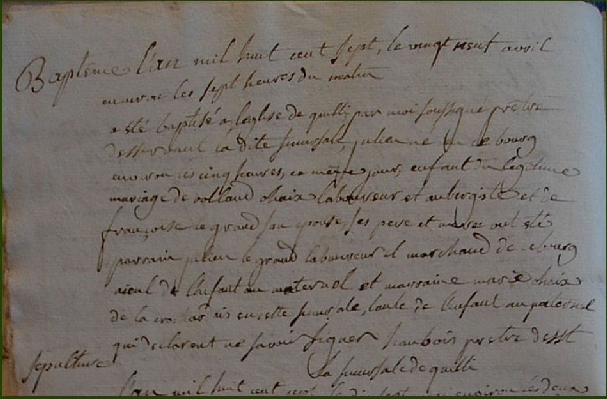 Baptême L'an mil huit cent sept, le vingt neuf avril
environ les sept heures du matin
a été baptisé a l'eglise de quilli par moi soussigné prêtre
desservant la dite succursale julien né en ce bourg
environ les cinq heures, ce même jour, enfant du légitime
mariage de rolland chaix laboureur et aubergiste et de
françoise le grand son epouse ses pere et mere ont été
parrain julien le grand laboureur et marchand de ce bourg
aieul de l'enfant au maternel et marraine marie chaix
de la en cette succursale, tante de l'enfant au paternel
qui declarent ne savoir signer haubois prêtre desst
Sepulture la succursale de quilli
L'an mil huit cent sept le dix sept environ les deux